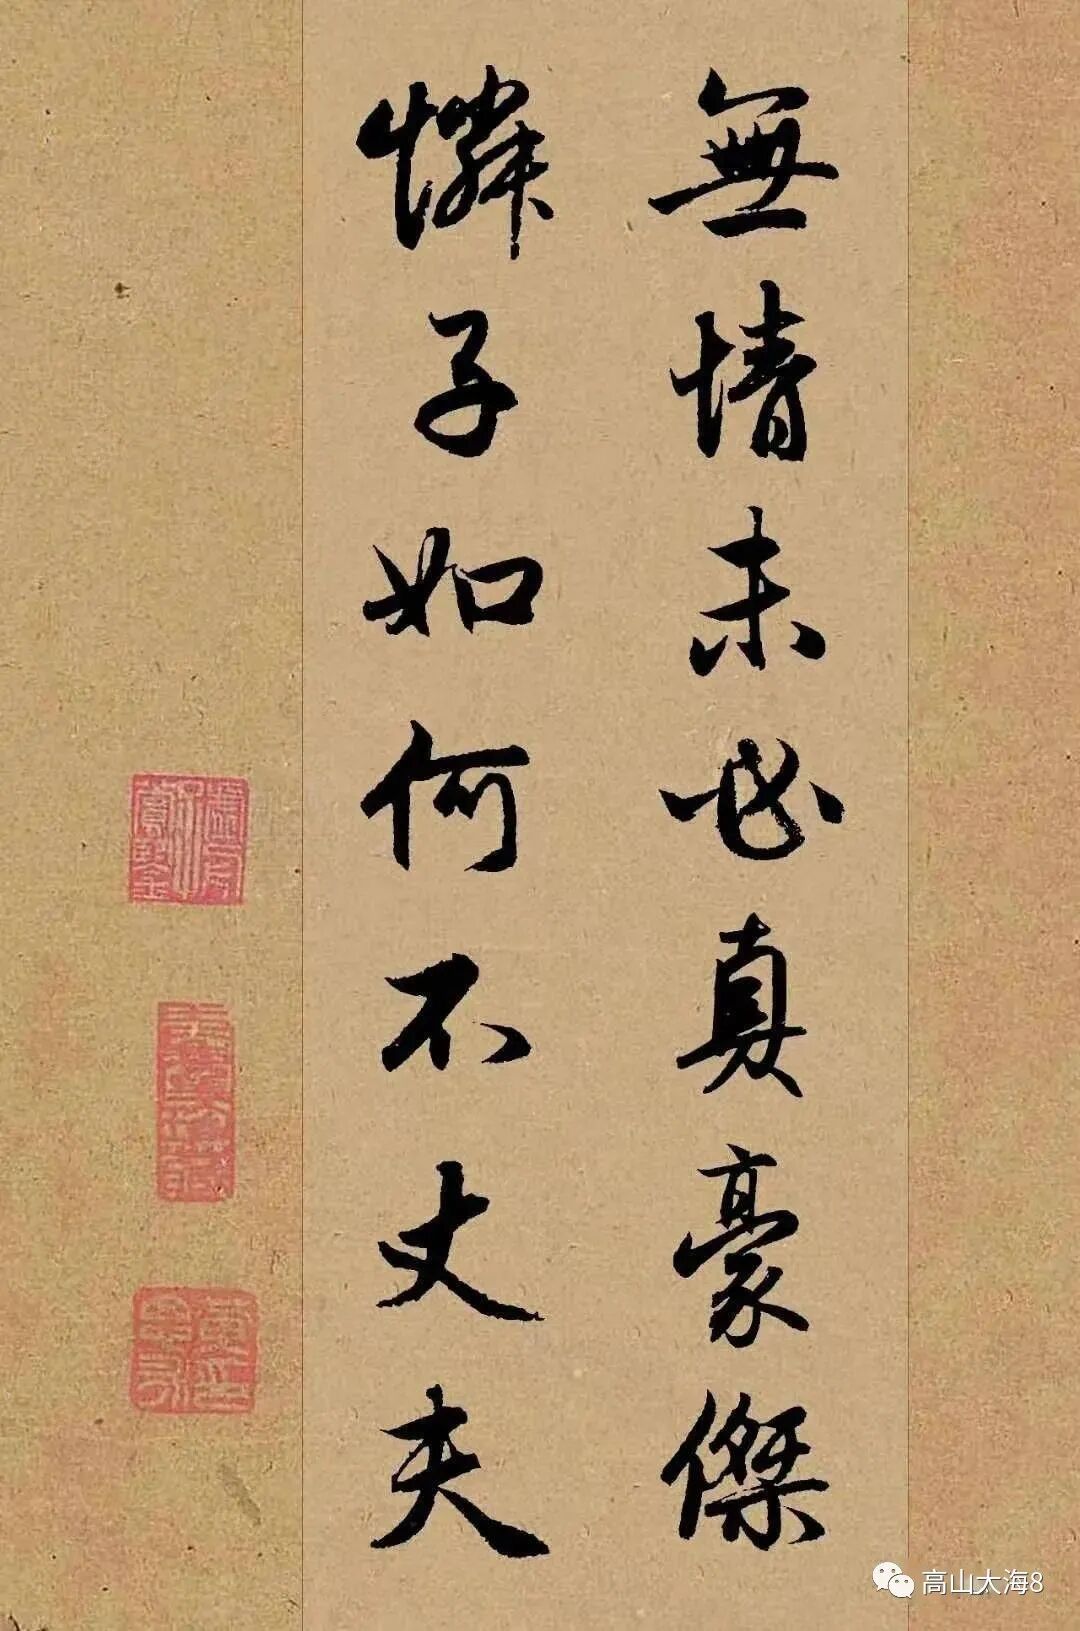 無情未必真豪傑
憐子如何不丈夫
高山大海8